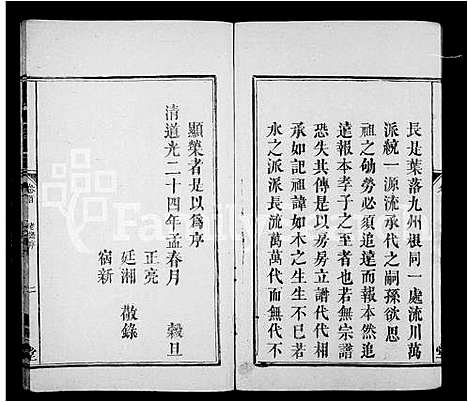 長是葉落九州根同一處流川萬
派統一源流承代之嗣孫欲思
祖之劬勞必須追遠而報本然追
遠報本孝子之至者也若無宗譜
恐失其傳是以房房立譜代代相
承如記祖諱如木之生生不已若
水之派派長流萬萬代而無代不
顯榮者是以為序
清道光二十四年孟春月 穀旦
正亮
廷湘 敬錄
宿新
卷首
堂